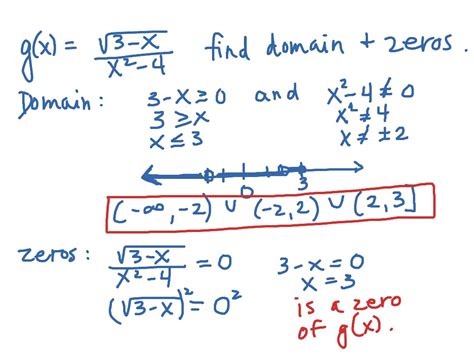 g(x) = √(3-x) / (x²-4) find domain + zeros.
Domain: 3-x≥0 and x²-4≠0
3≥x x²≠4
x≤3 x≠±2
0 3
(-∞,-2) ∪ (-2,2) ∪ (2,3]
zeros: √(3-x) / (x²-4) = 0 3-x=0
(√(3-x))² = 0² x=3
is a zero
of g(x).